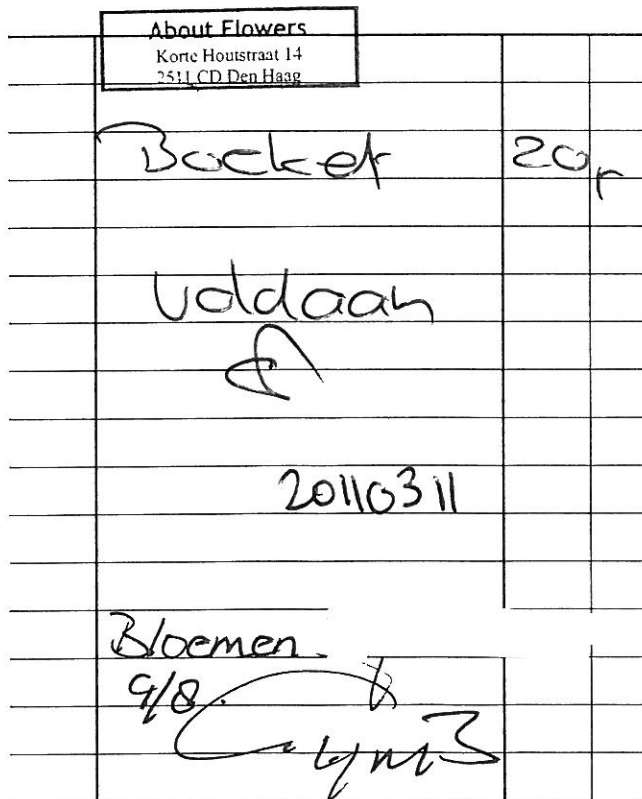 About Flowers
Korte Houtstraat 14
2511 CD Den Haag
Boeket 20,-
Voldaan
20110311
Bloemen.
9/8.